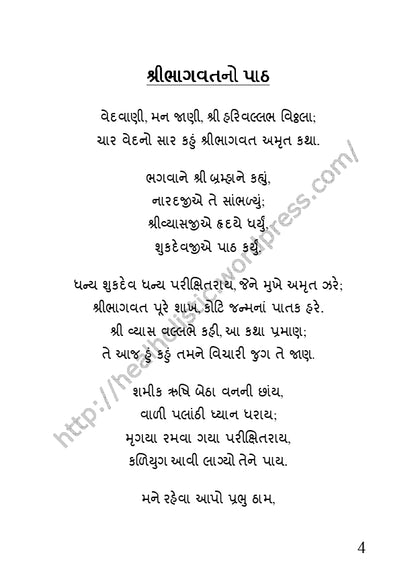 શ્રીભાગવતનો પાઠ
વેદવાણી, મન જાણી, શ્રી હરિવલ્લભ વિઠ્ઠલા;
ચાર વેદનો સાર કહું શ્રીભાગવત અમૃત કથા.
ભગવાને શ્રી બ્રહ્માને કહ્યું,
નારદજીએ તે સાંભળ્યું;
શ્રીવ્યાસજીએ હૃદયે ધર્યું,
શુકદેવજીએ પાઠ કર્યું.
ધન્ય શુકદેવ ધન્ય પરીક્ષિતરાય, જેને મુખે અમૃત ઝરે;
શ્રીભાગવત પૂરે શાખ, કોટિ જન્મનાં પાતક હરે.
શ્રી વ્યાસ વલ્લભે કહી, આ કથા પ્રમાણ;
તે આજ હું કહું તમને વિચારી જુગ તે જાણ.
શમીક ઋષિ બેઠા વનની છાંય,
વાળી પલાંઠી ધ્યાન ધરાય;
મૃગયા રમવા ગયા પરીક્ષિતરાય,
કળિયુગ આવી લાગ્યો તેને પાય.
મને રહેવા આપો પ્રભુ ઠામ,
http://healholistic.wordpress.com/
4